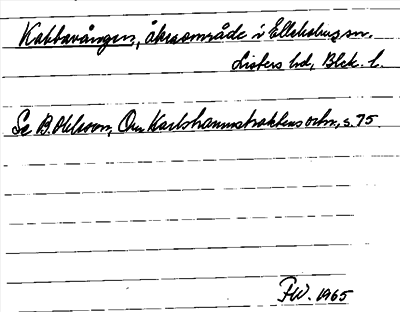 Kabbavången, åkerområde i Elleholms sn.
Listers hd, Blek. l.
Se B. Ohlsson, Om Karlshamnstraktens ortn., s. 75
FW. 1965